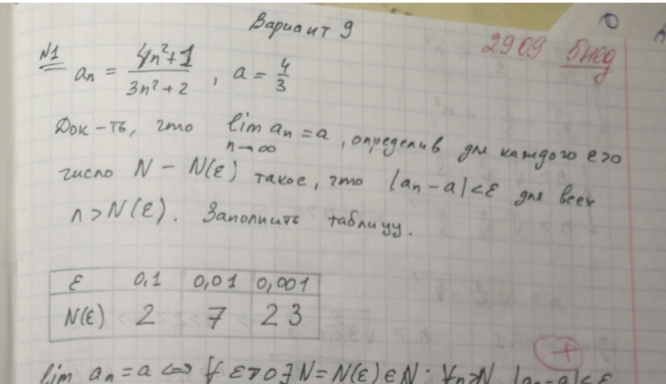 Вариант 9
29.09 5нед
N1 aₙ = (4n²+1)/(3n²+2), a = 4/3
Док-ть, что lim aₙ = a, определив для каждого ε>0
n→∞
число N – N(ε) такое, что |aₙ – a| < ε для всех
n > N(ε). Заполнить таблицу.
ε 0,1 0,01 0,001
N(ε) 2 7 23
+
lim aₙ = a ⇔ ∀ ε>0 ∃ N = N(ε) ∈ N: ∀n>N |aₙ–a|<ε